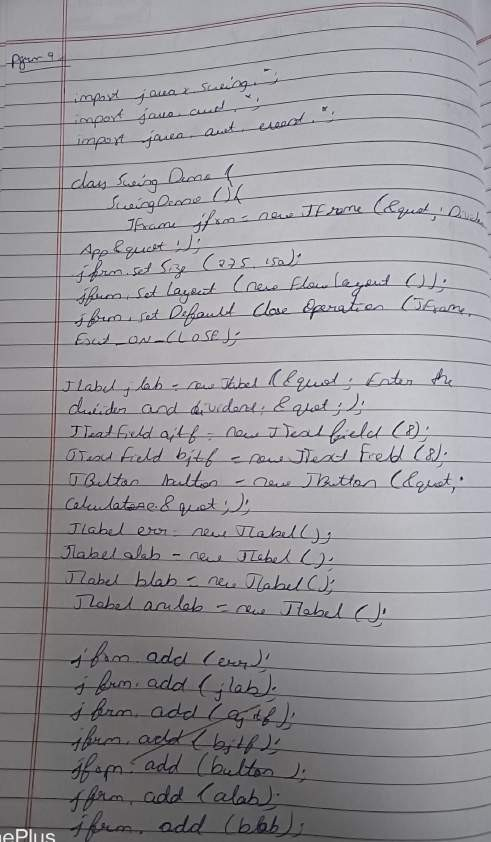 Pgm 9.
import javax swing.*;
import java. awt. *;
import java. awt. event. *;
class Swing Demo {
SwingDemo () {
JFrame jfrm = new JFrame (&quot; Divider
App &quot ;);
jfrm. set Size (275, 150);
jfrm. set Layout (new Flow layout ());
jfrm. set Default Close Operation (JFrame.
Exit_ON_CLOSE);
Jlabel jlab = new Jlabel (&quot; Enter the
divider and dividend; & quot ;);
JTextfield ajtf = new JTextfield (8);
JText field bjtf = new JText Field (8);
JButton button = new JButton (&quot;
Calculate & quot ;);
Jlabel err = new Jlabel ();
Jlabel alab = new Jlabel ();
Jlabel blab = new Jlabel ();
Jlabel anslab = new Jlabel ();
jfrm. add (err);
jfrm. add (jlab);
jfrm. add (ajtf);
jfrm. add (bjtf);
jfrm. add (button );
jfrm. add (alab);
jfrm. add (blab);
ePlus